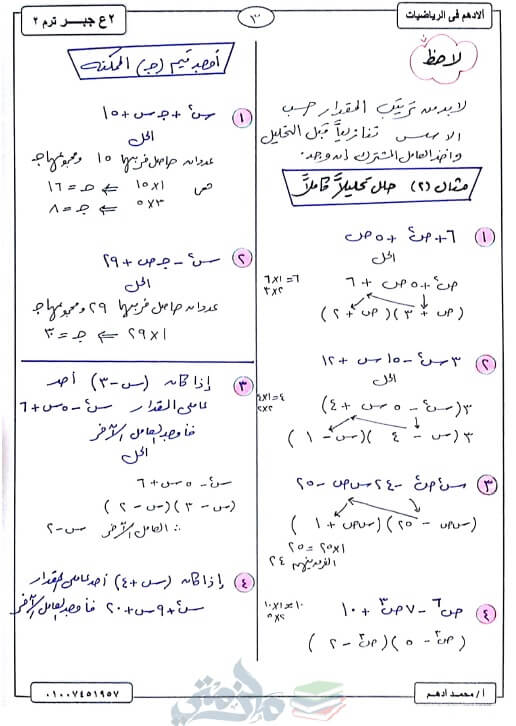 ألادهم فى الرياضيات
٣
٢ع جبر ترم ٢
لاحظ
لابد من ترتيب المقدار حسب
الاسس تنازلياً قبل التحليل
واخذ العامل المشترك إن وجد.
مثال (٢) حلل تحليلاً كاملاً
١ ٦ + ص² + ٥ص
الحل
ص² + ٥ص + ٦
٦ = ١×٦
٣×٢
(ص + ٣)(ص + ٢)
٢ ٣س² - ١٥س + ١٢
الحل
٣(س² - ٥س + ٤)
٤ = ١×٤
٢×٢
٣(س - ٤)(س - ١)
٣ س²ص² - ٢٤س ص - ٢٥
(س ص - ٢٥)(س ص + ١)
٢٥ = ٢٥×١
الفرق بينهم ٢٤
٤ ص٦ - ٧ص٣ + ١٠
١٠ = ١×١٠
٥×٢
(ص٣ - ٥)(ص٣ - ٢)
أوجد قيم (جـ) الممكنه
١ س² + جـ س + ١٥
الحل
عددان حاصل ضربهما ١٥ ومجموعهما جـ
١×١٥ ⇐ جـ = ١٦
٣×٥ ⇐ جـ = ٨
٢ س² - جـ ص + ٢٩
الحل
عددان حاصل ضربهما ٢٩ ومجموعهما جـ
١×٢٩ ⇐ جـ = ٣٠
٣ إذا كان (س - ٣) أحد
عاملى المقدار س² - ٥س + ٦
فأوجد العامل الآخر
الحل
س² - ٥س + ٦
(س - ٣)(س - ٢)
∴ العامل الآخر س - ٢
٤ إذا كان (س + ٤) أحد عاملى المقدار
س² + ٩س + ٢٠ فأوجد العامل الآخر
أ / محمد أدهم
٠١٠٠٧٤٥١٩٥٧